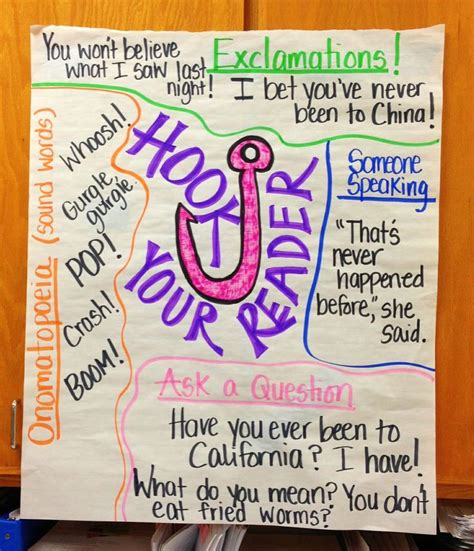 You won't believe
what I saw last
night!
Exclamations!
I bet you've never
been to China!
Onomatopoeia (sound words)
Whoosh!
Gurgle
gurgle.
POP!
Crash!
BOOM!
HOOK
YOUR
READER
Someone
Speaking
"That's
never
happened
before," she
said.
Ask a Question
Have you ever been to
California? I have!
What do you mean? You don't
eat fried worms?